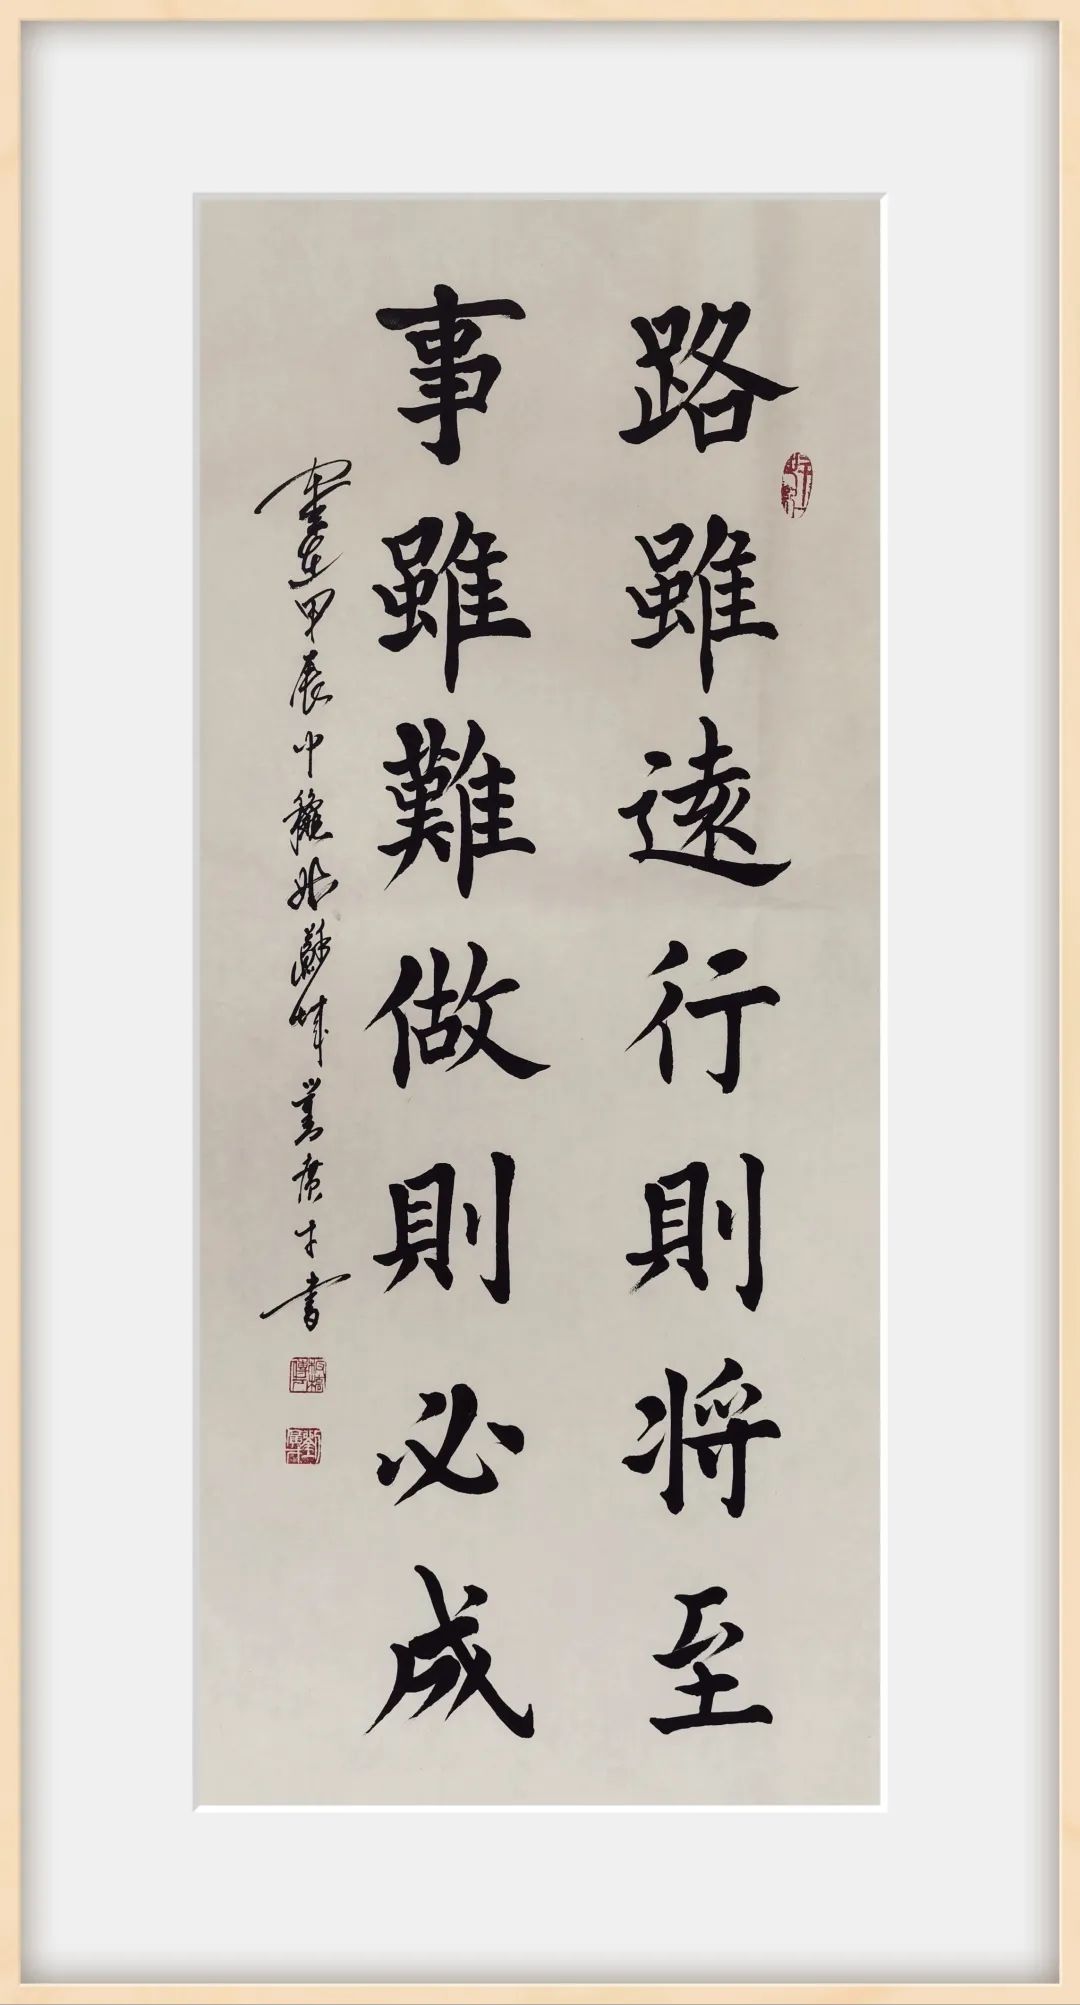 路雖遠行則將至
事雖難做則必成
歲在甲辰中龝於
廣才書